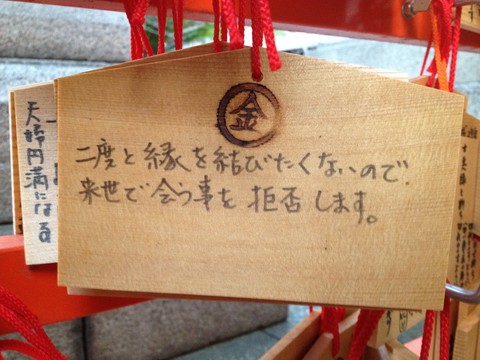 金
二度と縁を結びたくないので、
来世で会う事を拒否します。
円満になる